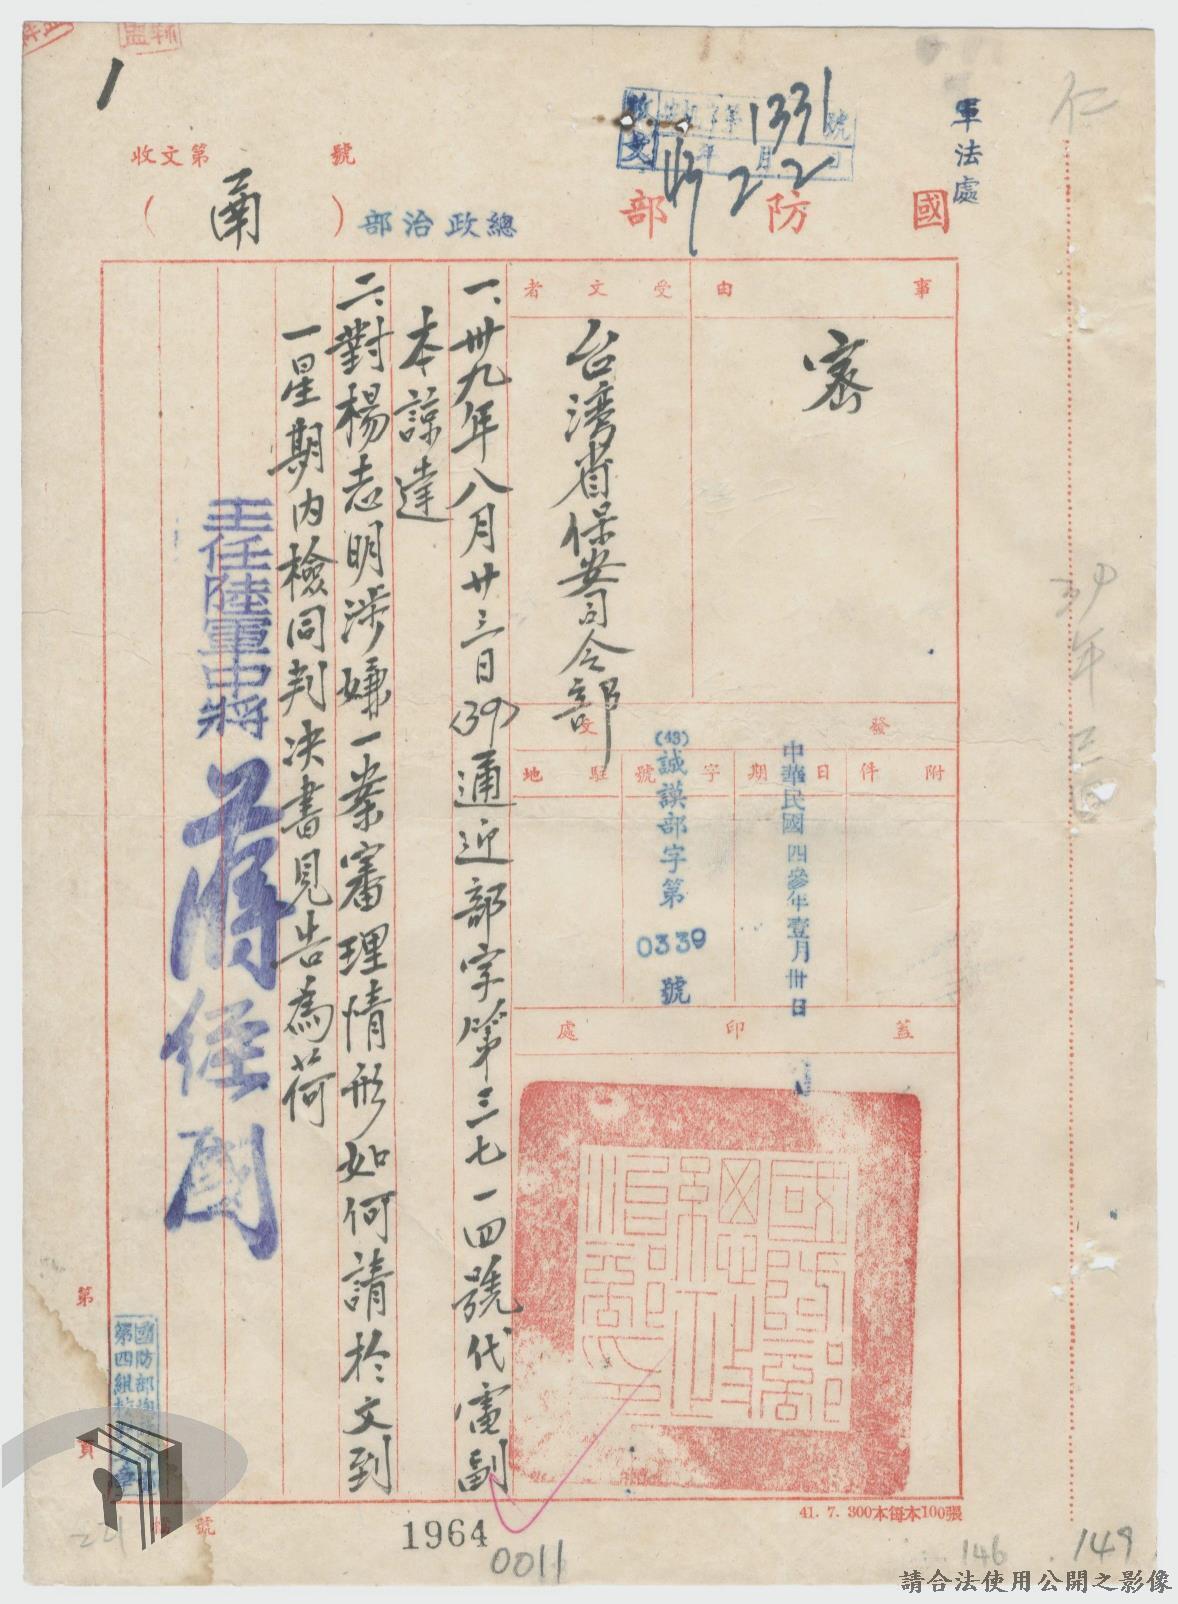 1
收文第 號
軍法處
收文
第1331號
年 月 日
43 2 2
仁
國防部
總政治部
(函)
事由
密
受文者
台湾省保安司令部
發文
附件
日期
中華民國四參年壹月卅日
字號
(43)誠謨部字第0339號
駐地
蓋印處
國防部總政治部印
一、卅九年八月廿三日(39)通近部字第三七一四號代電副
本諒達
二、對楊志明涉嫌一案審理情形如何請於文到
一星期内檢同判决書見告為荷
主任陸軍中將蔣經國
第 頁
國防部總
第四組
檔號
41. 7. 300本每本100張
1964
0011
146
149
請合法使用公開之影像